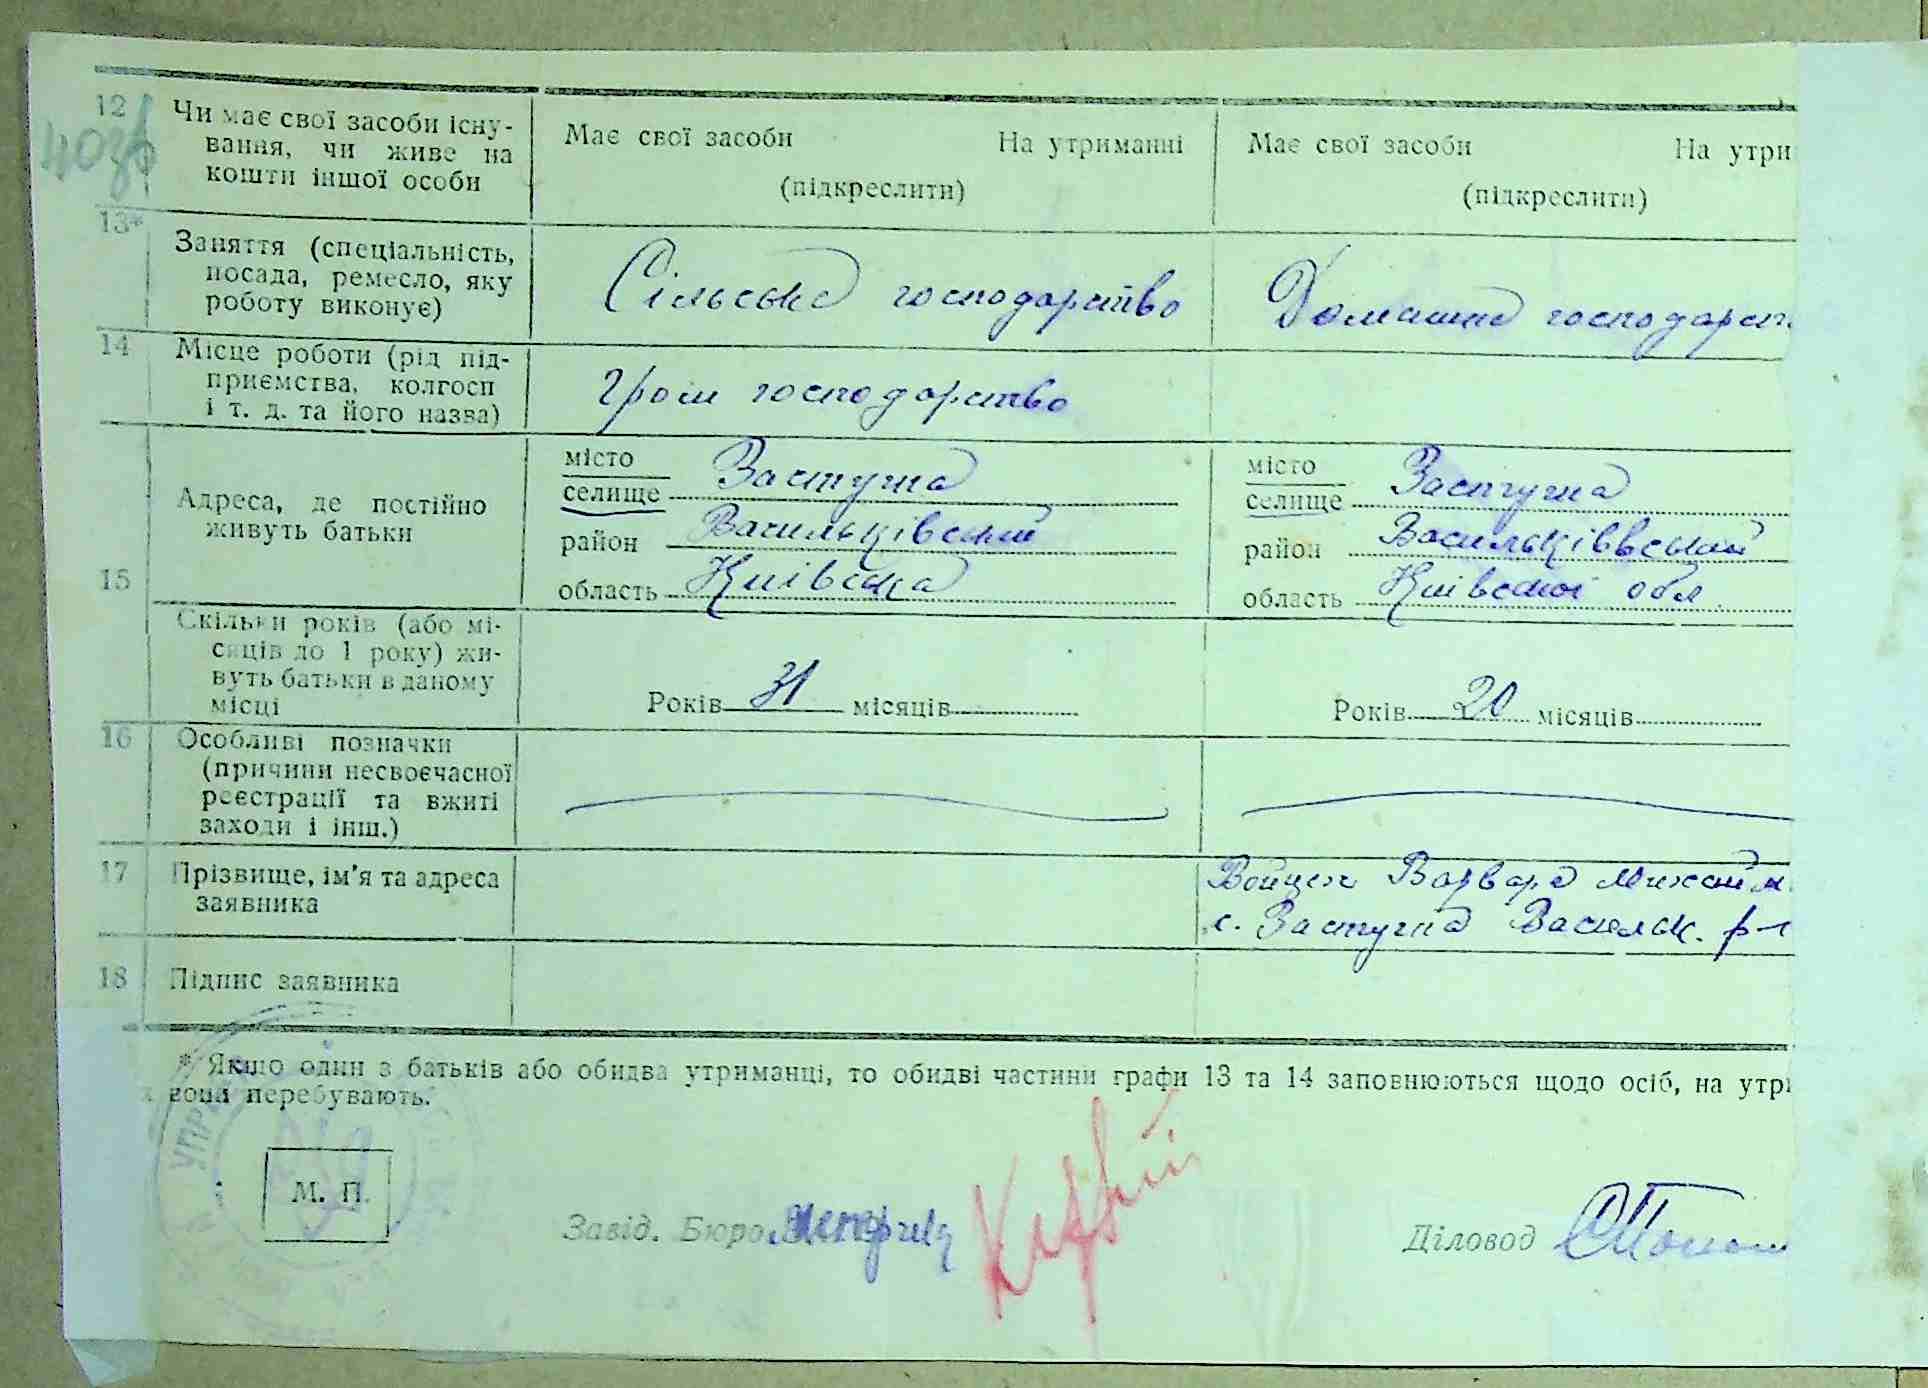 12
40зв
Чи має свої засоби існу-
вання, чи живе на
кошти іншої особи
Має свої засоби На утриманні
(підкреслити)
Має свої засоби На утри
(підкреслити)
13*
Заняття (спеціальність,
посада, ремесло, яку
роботу виконує)
Сільське господарство
Домашнє господарст
14
Місце роботи (рід під-
приємства, колгосп
і т. д. та його назва)
Гром господарство
15
Адреса, де постійно
живуть батьки
місто
селище Застугна
район Васильківський
область Київська
місто
селище Застугна
район Васильківвський
область Київської обл
Скільки років (або мі-
сяців до 1 року) жи-
вуть батьки в даному
місці
Років 31 місяців
Років 20 місяців
16
Особливі позначки
(причини несвоєчасної
реєстрації та вжиті
заходи і інш.)
17
Прізвище, ім'я та адреса
заявника
Войцех Варвара Михайл
с. Застугна Васильк. р-
18
Підпис заявника
* Якщо один з батьків або обидва утриманці, то обидві частини графи 13 та 14 заповнюються щодо осіб, на утри
вони перебувають.
УПР
М. П.
Завід. Бюро
Діловод